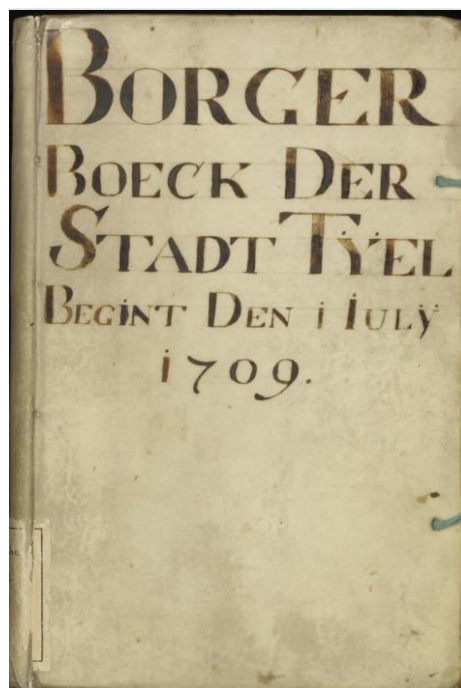 BORGER
BOECK DER
STADT TYEL
BEGINT DEN 1 IULY
1709.